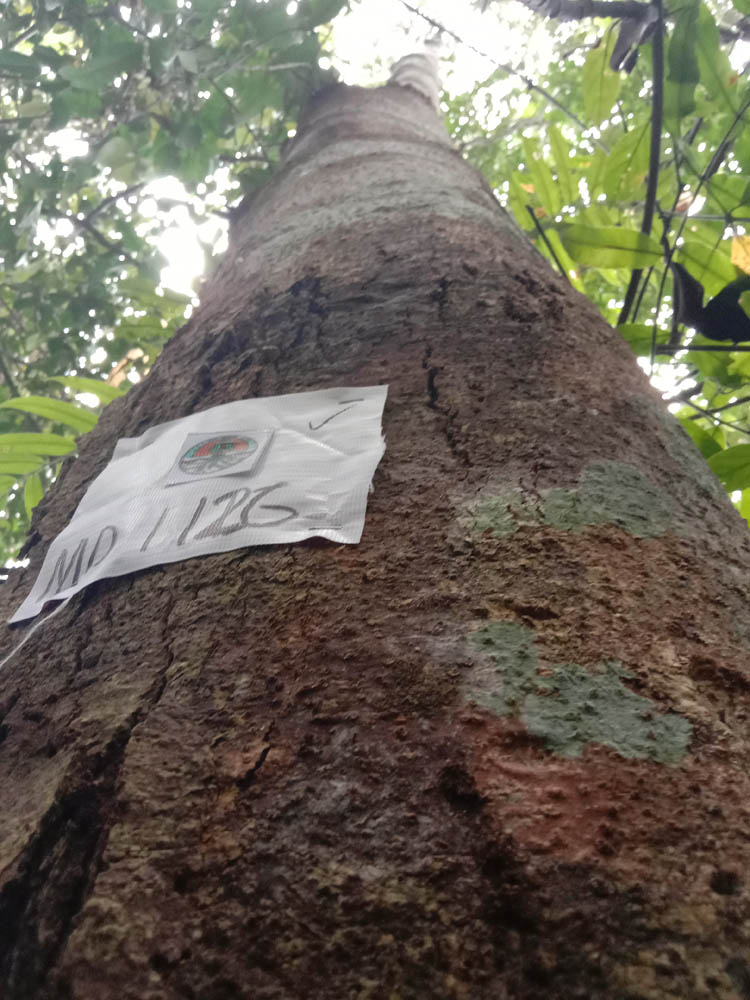 MD 1126